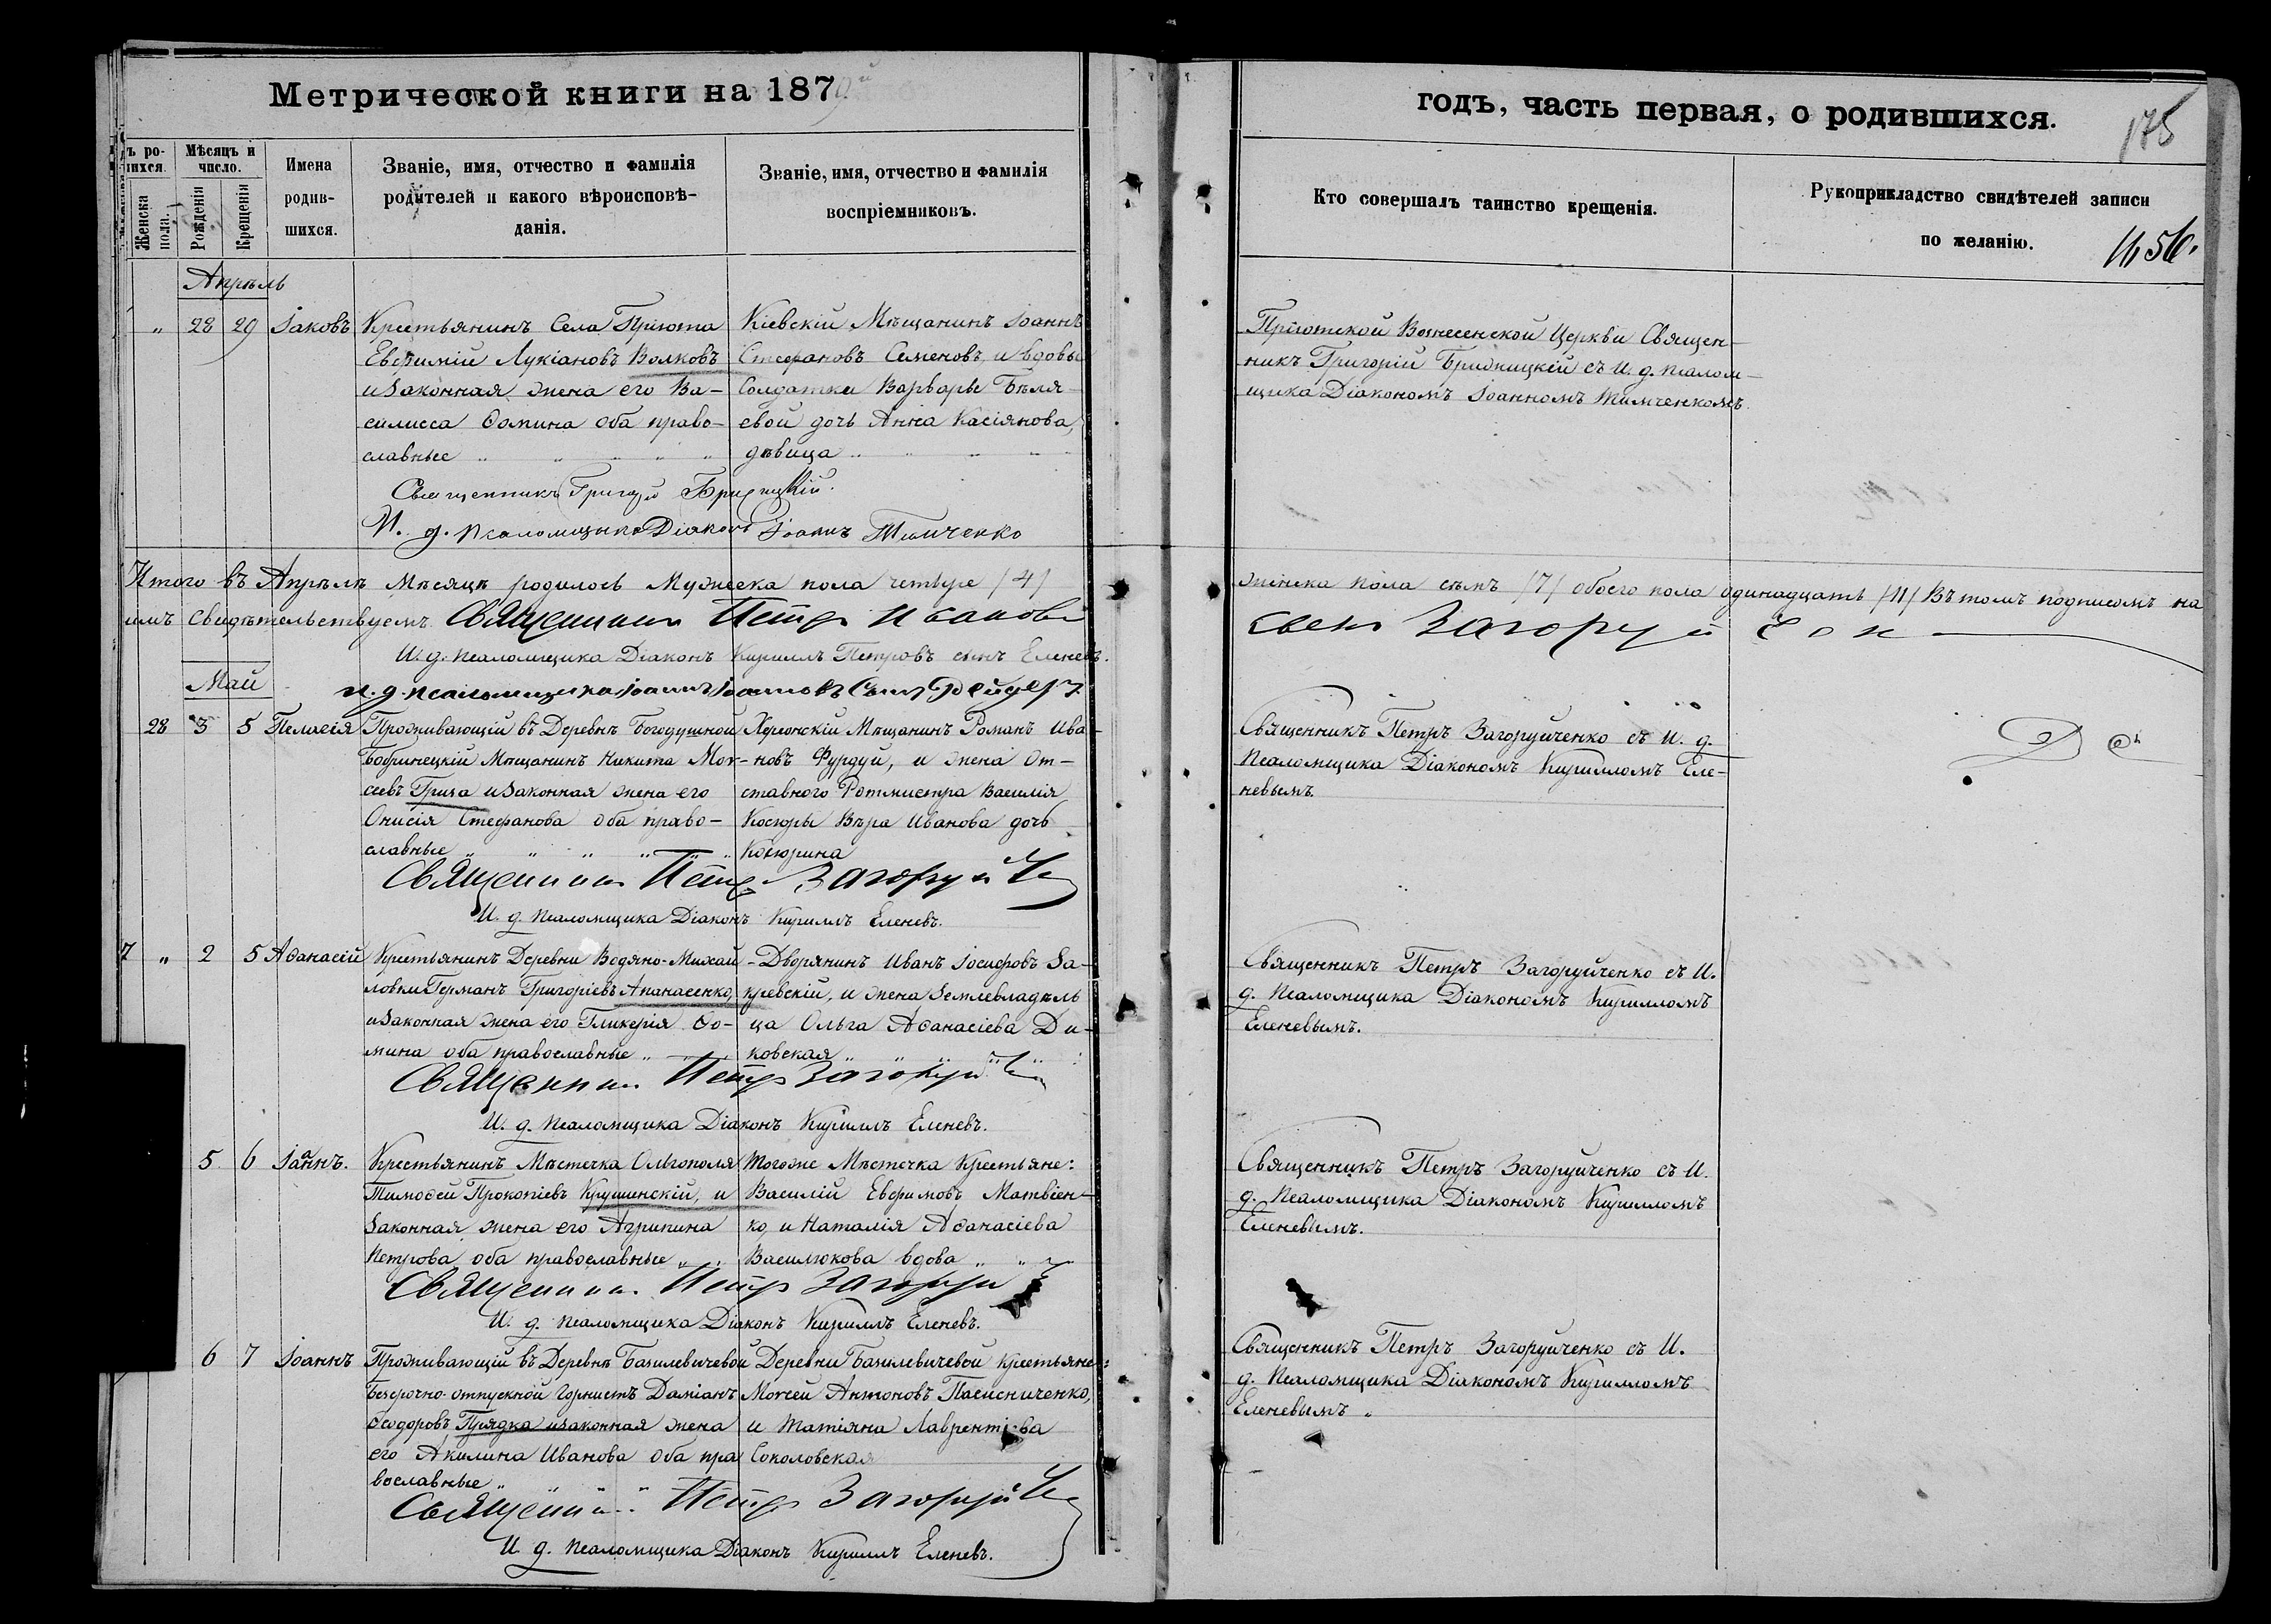 Метрической книги на 1879й
годъ, часть первая, о родившихся.
175
Мѣсяцъ и число.
Женска пола.
Рожденія
Крещенія
Имена родив-шихся.
Званіе, имя, отчество и фамилія
родителей и какого вѣроисповѣ-
данія.
Званіе, имя, отчество и фамилія
воспріемниковъ.
Кто совершалъ таинство крещенія.
Рукоприкладство свидѣтелей записи
по желанію.
Апрѣль
" 28 29 Іаковъ
Крестьянинъ Села Пріюта
Евфимій Лукіановъ Волковъ
и законная жена его Ва-
силисса Ѳомина оба право-
славные
Кіевскій Мѣщанинъ Іоаннъ
Стефановъ Семеновъ, и вдовы
Солдатки Варвары Бѣля-
евой дочь Анна Касіянова,
дѣвица
Пріютской Вознесенской Церкви Священ-
никъ Григорій Бридницкій съ И. д. псалом-
щика Діакономъ Іоанномъ Тимченкомъ
Священникъ Григорій Бридницкій.
И. д. псаломщика Діаконъ Іоаннъ Тимченко
Итого въ Апрѣлѣ мѣсяцѣ родилось Мужеска пола четыре /4/ женска пола семъ /7/ обоего пола одинадцать /11/ Въ томъ подписомъ на
имъ свидѣтельствуемъ Священникъ Петръ Ивановъ сынъ Загоруйченко
И. д. псаломщика Діаконъ Кириллъ Петровъ сынъ Еленевъ.
Май
и. д. псаломщика Іоаннъ Іоанновъ Сынъ
28 3 5 Пелагія
Проживающій въ Деревнѣ Богодушной
Бобринецкій Мѣщанинъ Никита Мог-
сеевъ Грига и законная жена его
Онисія Стефанова оба право-
славные
Херсонскій Мѣщанинъ Романъ Ива-
новъ Фурдуй, и жена От-
ставного Ротмистра Василія
Косюры Вѣра Иванова дочь
Косюрина
Священникъ Петръ Загоруйченко съ И. д.
Псаломщика Діакономъ Кирилломъ Еле-
невымъ.
Священникъ Петръ Загоруйче
И. д. псаломщика Діаконъ Кириллъ Еленевъ.
7 " 2 5 Аѳанасій
Крестьянинъ Деревни Водяно-Михай-
ловки Германъ Григоріевъ Апанасенко,
и законная жена его Гликерія Ѳо-
мина оба православные
Дворянинъ Иванъ Іосифовъ За-
кревскій, и жена Землевладѣль
ца Ольга Аѳанасіева Ди-
ковская
Священникъ Петръ Загоруйченко съ И.
д. Псаломщика Діакономъ Кирилломъ
Еленевымъ.
Священникъ Петръ Загоруйче
И. д. псаломщика Діаконъ Кириллъ Еленевъ.
5 6 Іоаннъ.
Крестьянинъ Мѣстечка Ольгополя
Тимоѳей Прокопіевъ Крушинскій, и
законная жена его Агрипина
Петрова оба православные
Тогоже Мѣстечка Крестьяне:
Василій Евфимовъ Матвіен-
ко, и Наталія Аѳанасіева
Василюкова вдова
Священникъ Петръ Загоруйченко съ И.
д. Псаломщика Діакономъ Кирилломъ
Еленевымъ.
Священникъ Петръ Загоруй
И. д. псаломщика Діаконъ Кириллъ Еленевъ.
6 7 Іоаннъ
Проживающій въ Деревнѣ Базилевичевой
Безсрочно-отпускной Горнистъ Даміанъ
Ѳеодоровъ Прядка и законная жена
его Акилина Иванова оба пра
вославные
Деревни Базилевичевой крестьяне:
Моѵсей Антоновъ Пасисниченко,
и Татіяна Лаврентіева
Соколовская
Священникъ Петръ Загоруйченко съ И.
д. Псаломщика Діакономъ Кирилломъ
Еленевымъ
Священникъ Петръ Загоруйче
И. д. псаломщика Діаконъ Кириллъ Еленевъ.